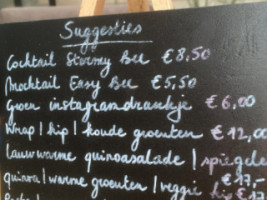 Suggesties
Cocktail Stormy Bee €8,50
Mocktail Easy Bee €5,50
Groen instagramdrankje €6,00
Wrap | kip | koude groenten €12,00
Lauwwarme quinoasalade | spiegele
quinoa | warme groenten | veggie €17,-
kip €17